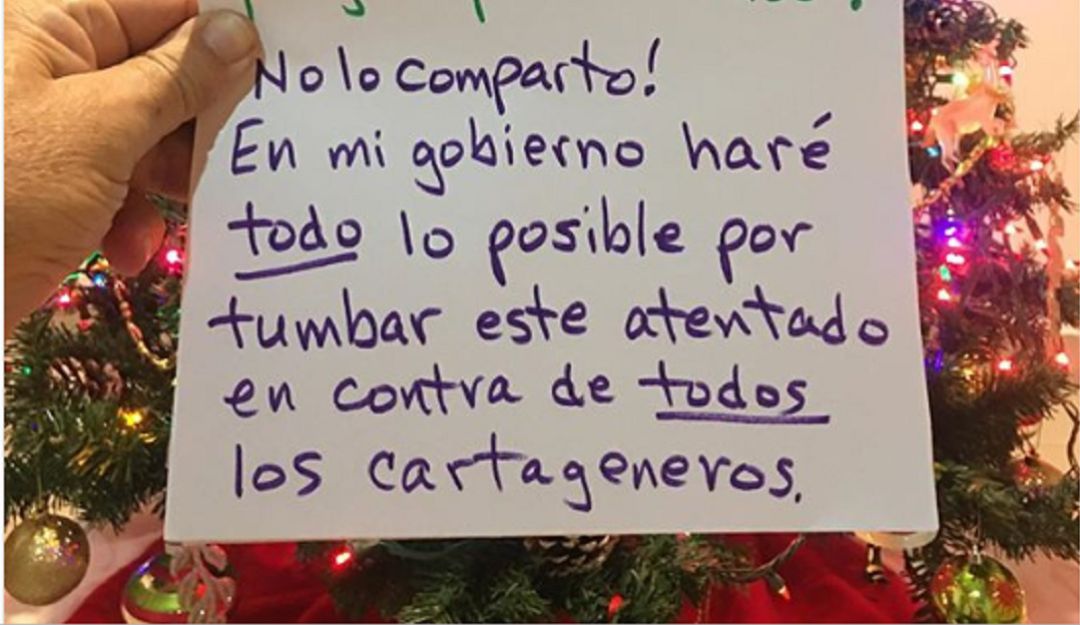 No lo comparto!
En mi gobierno haré
todo lo posible por
tumbar este atentado
en contra de todos
los cartageneros.